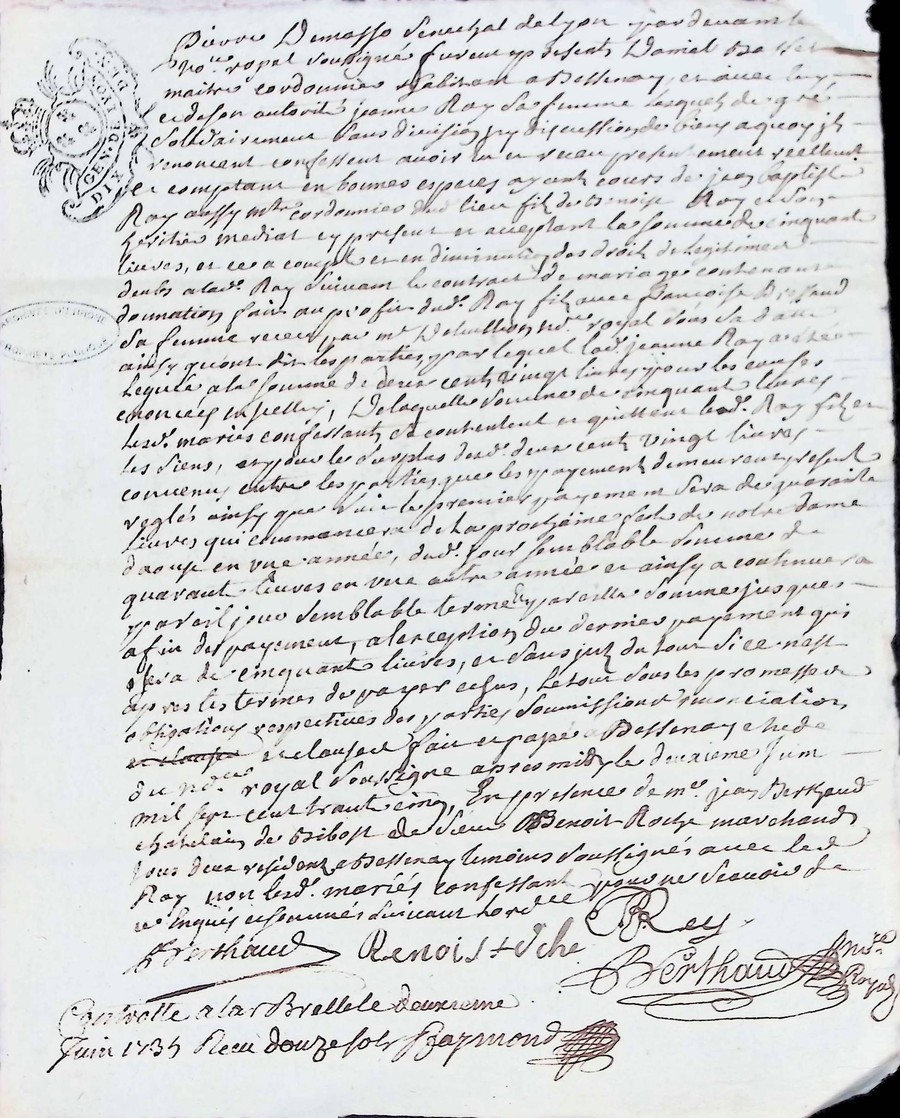 Pierre Demasso Senechal de Lyon pardevant le
no.re royal soussigné furent presents Daniel
maitre cordonnier habitant a Bessenay, et avec luy
et de son autorité jeanne Ray sa femme lesquels de gré
solidairement sans division, ny discussion de biens a quoy ils
renoncent confessent avoir eu et receu presentement reellement
et comptant en bonnes especes ayant cours de jean baptiste
Ray aussy mtre cordonnier dud. lieu fils de Benoist Ray et son
heritier mediat cy present et acceptant la somme de cinquant
livres, et ce a compte et en diminution des droits de legitime
deubs a lad. Ray suivant le contract de mariage contenant
donnation fait au profit dud. Ray fils avec francoise
sa femme receu par me no.re royal sous sa date
ainsy qu'ont dit les parties, par lequel lad. jeanne Ray a été
leguée a la somme de deux cent vingt livres pour les causes
enoncées en icelluy, De laquelle somme de cinquant livres
lesd. mariés confessants se contentent et quittent led. Ray fils et
les siens, et pour le surplus desd. deux cent vingt livres
convenu entre les parties, que les payement demeureront present
reglés ainsy que suit le premier payement sera de quarante
livres qui commencera de la prochaine feste de notre dame
daoust en une année, dud. jour semblable somme de
quarant livres en une autre année et ainsy a continuer a
pareil jour semblable terme et pareille somme jusques
a fin de payement, a l'exception du dernier payement qui
sera de cinquant livres, et sans jnt. du tour si ce nest
apres les termes de payer echus, le tout sous les promesses
obligations respectives des parties soumissions renonciation
et clause et clauses fait et passé a Bessenay etude
du no.re royal soussigné apres midy le deuxieme juin
mil sept cent trant cinq, En presence de me. jean Berthaud
chatelain de Bibost et de sieur Benoit Roche marchand
tous deux resident a Bessenay temoins soussignés avec led.
Ray non lesd. mariés confessant pour ne scavoir de
ce Enquis et sommés suivant lord.ce
Berthaud Benoist Roche Rey
Berthaud no.re Royal
Controllé a lar Brelle le deuxieme
Juin 1735 Receu douze sols Raymond